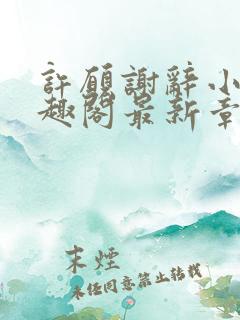 許願謝辭小
趣閣最新章
末煙
未經同意禁止轉載